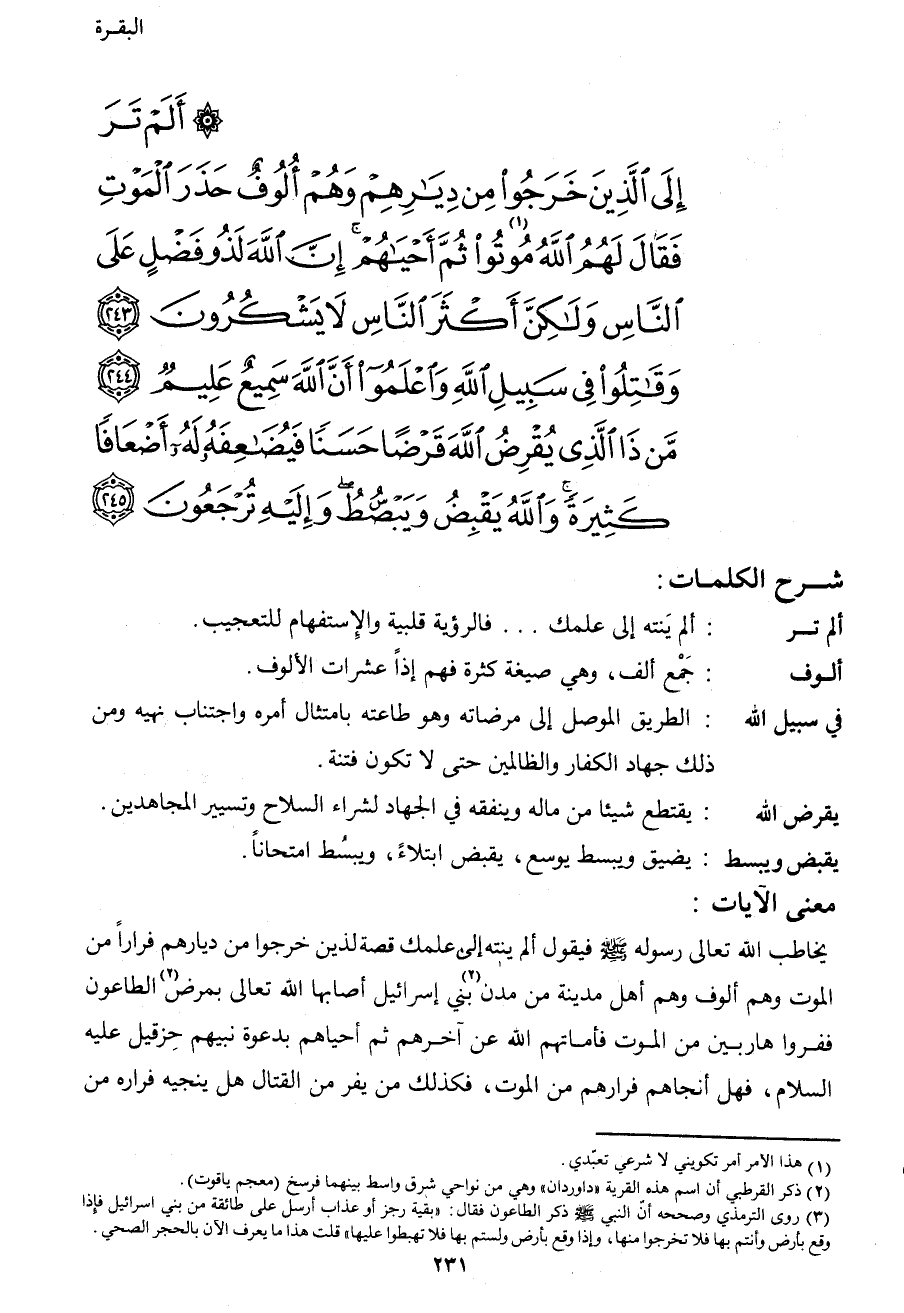 البقـرة
۞ أَلَمْ تَرَ
إِلَى ٱلَّذِينَ خَرَجُوا۟ مِن دِيَـٰرِهِمْ وَهُمْ أُلُوفٌ حَذَرَ ٱلْمَوْتِ
فَقَالَ لَهُمُ ٱللَّهُ مُوتُوا۟ (١) ثُمَّ أَحْيَـٰهُمْ ۚ إِنَّ ٱللَّهَ لَذُو فَضْلٍ عَلَى
ٱلنَّاسِ وَلَـٰكِنَّ أَكْثَرَ ٱلنَّاسِ لَا يَشْكُرُونَ ٢٤٣
وَقَـٰتِلُوا۟ فِى سَبِيلِ ٱللَّهِ وَٱعْلَمُوٓا۟ أَنَّ ٱللَّهَ سَمِيعٌ عَلِيمٌ ٢٤٤
مَّن ذَا ٱلَّذِى يُقْرِضُ ٱللَّهَ قَرْضًا حَسَنًا فَيُضَـٰعِفَهُۥ لَهُۥٓ أَضْعَافًا
كَثِيرَةً ۚ وَٱللَّهُ يَقْبِضُ وَيَبْصُۜطُ وَإِلَيْهِ تُرْجَعُونَ ٢٤٥
شـرح الكلمـات :
ألم تـر : ألم يَنته إلى علمك ... فالرؤية قلبية والإستفهام للتعجيب .
ألـوف : جَمْع ألف ، وهي صيغة كثرة فهم إذاً عشرات الألوف .
في سبيل الله : الطريق الموصل إلى مرضاته وهو طاعته بامتثال أمره واجتناب نهيه ومن
ذلك جهاد الكفار والظالمين حتى لا تكون فتنة .
يقرض الله : يقتطع شيئا من ماله وينفقه في الجهاد لشراء السلاح وتسيير المجاهدين .
يقبض ويبسط : يضيق ويبسط يوسع ، يقبض ابتلاءً ، ويبسُط امتحاناً .
معنى الآيات :
يخاطب الله تعالى رسوله ﷺ فيقول ألم ينته إلى علمك قصة لذين خرجوا من ديارهم فراراً من
الموت وهم ألوف وهم أهل مدينة من مدن (٢) بني إسرائيل أصابها الله تعالى بمرض (٢) الطاعون
ففروا هاربين من الموت فأماتهم الله عن آخرهم ثم أحياهم بدعوة نبيهم حِزقيل عليه
السلام ، فهل أنجاهم فرارهم من الموت ، فكذلك من يفر من القتال هل ينجيه فراره من
(١) هذا الأمر أمر تكويني لا شرعي تعبّدي .
(٢) ذكر القرطبي أن اسم هذه القرية «داوردان» وهي من نواحي شرق واسط بينهما فرسخ (معجم ياقوت) .
(٣) روى الترمذي وصححه أنّ النبي ﷺ ذكر الطاعون فقال : «بقية رجز أو عذاب أرسل على طائفة من بني اسرائيل فإذا
وقع بأرض وأنتم بها فلا تخرجوا منها ، وإذا وقع بأرض ولستم بها فلا تهبطوا عليها» قلت هذا ما يعرف الآن بالحجر الصحي .
٢٣١